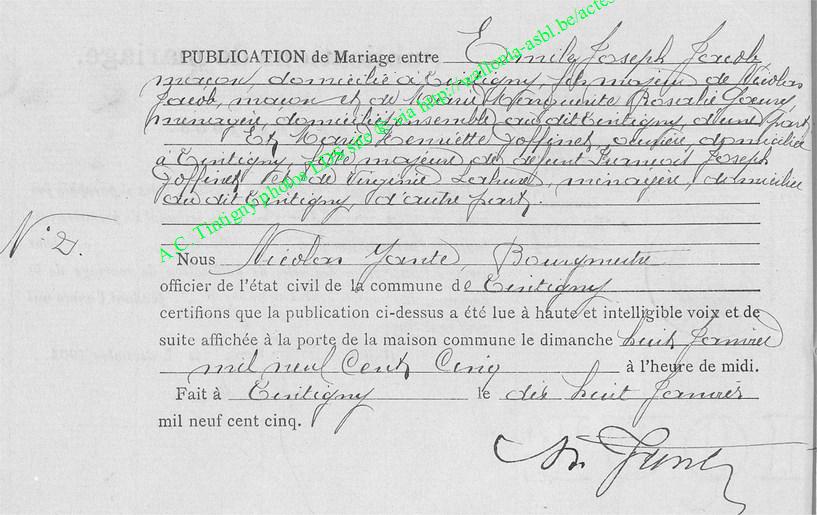 PUBLICATION de Mariage entre Emile Joseph Jacob,
maçon, domicilié à Tintigny, fils majeur de Nicolas
Jacob, maçon et de Marie Marguerite Rosalie
ménagère, domiciliés ensemble au dit Tintigny, d'une part
Et Marie Henriette Goffinet, ouvrière, domiciliée
à Tintigny, fille majeure de défunt François Joseph
Goffinet et de Virginie Lahure, ménagère, domiciliée
au dit Tintigny, d'autre part.
N° 2.
Nous Nicolas Bourgmestre
officier de l'état civil de la commune de Tintigny
certifions que la publication ci-dessus a été lue à haute et intelligible voix et de
suite affichée à la porte de la maison commune le dimanche huit Janvier
mil neuf Cent Cinq à l'heure de midi.
Fait à Tintigny le dix huit Janvier
mil neuf cent cinq.
A.C. Tintigny photos LDS site @ via http://wallonia-asbl.be/actes